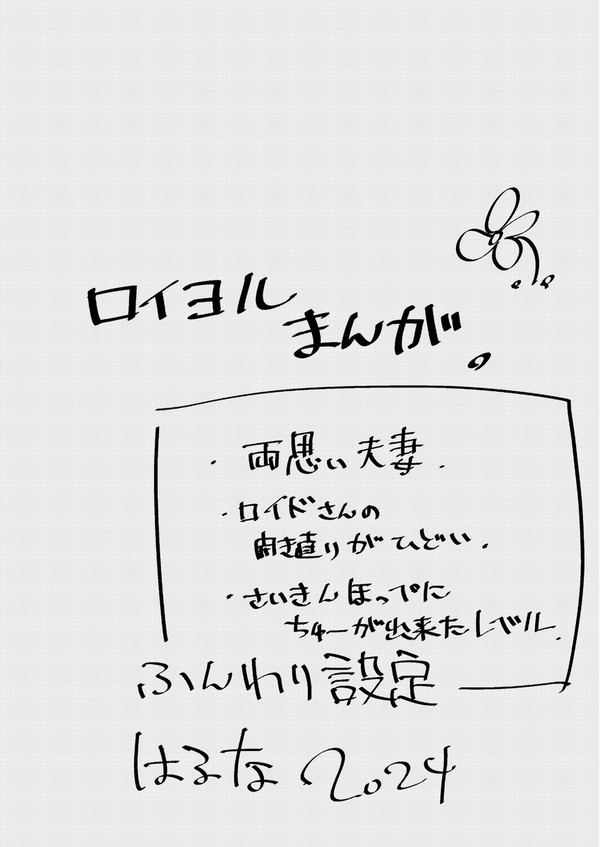 ロイヨル
まんが。
・両思い夫妻.
・ロイドさんの
開き直りがひどい.
・さいきんほっぺに
ちゅーが出来たレベル.
ふんわり設定
はるな 2024